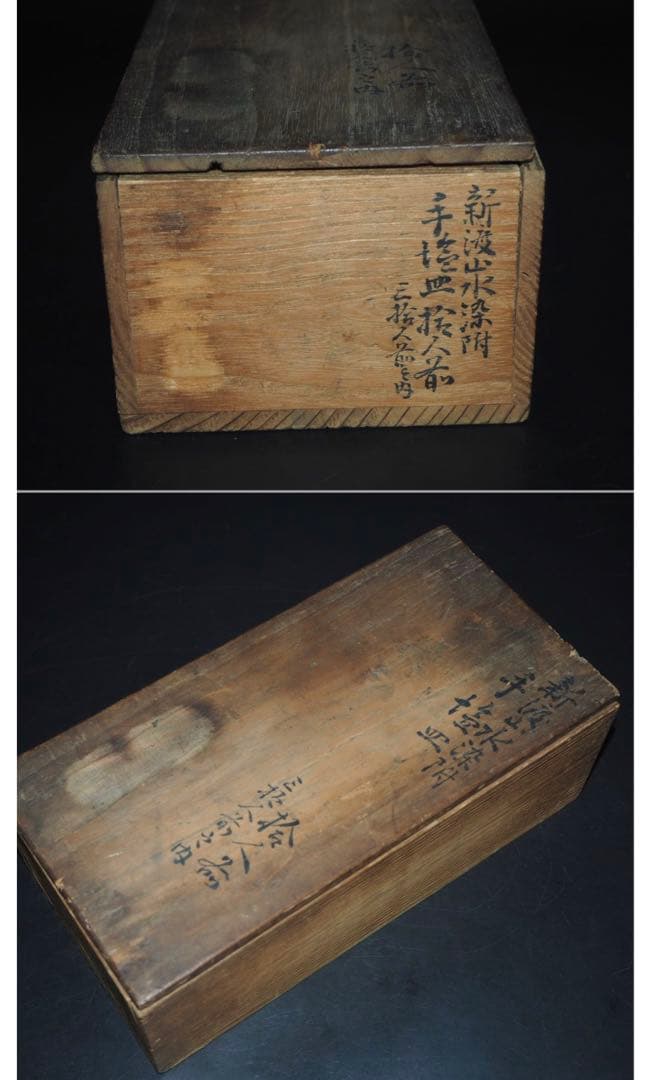 拾人前
三拾人前之内
新渡山水染附
手塩皿拾人前
三拾人前之内
新渡山水染附
手塩皿
拾人前
三拾人前之内